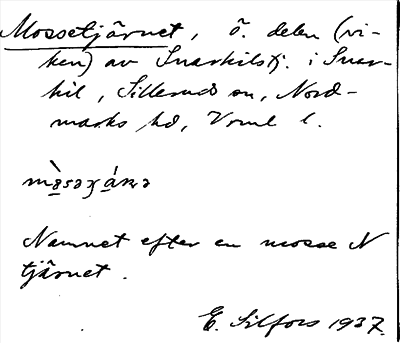 Mossetjärnet, ö. delen (vi-
ken) av Snarkilstj. i Snar-
kil, Sillerud sn, Nord-
marks hd, Vrml l.
Namnet efter en mosse N
tjärnet.
E. Silfors 1937.